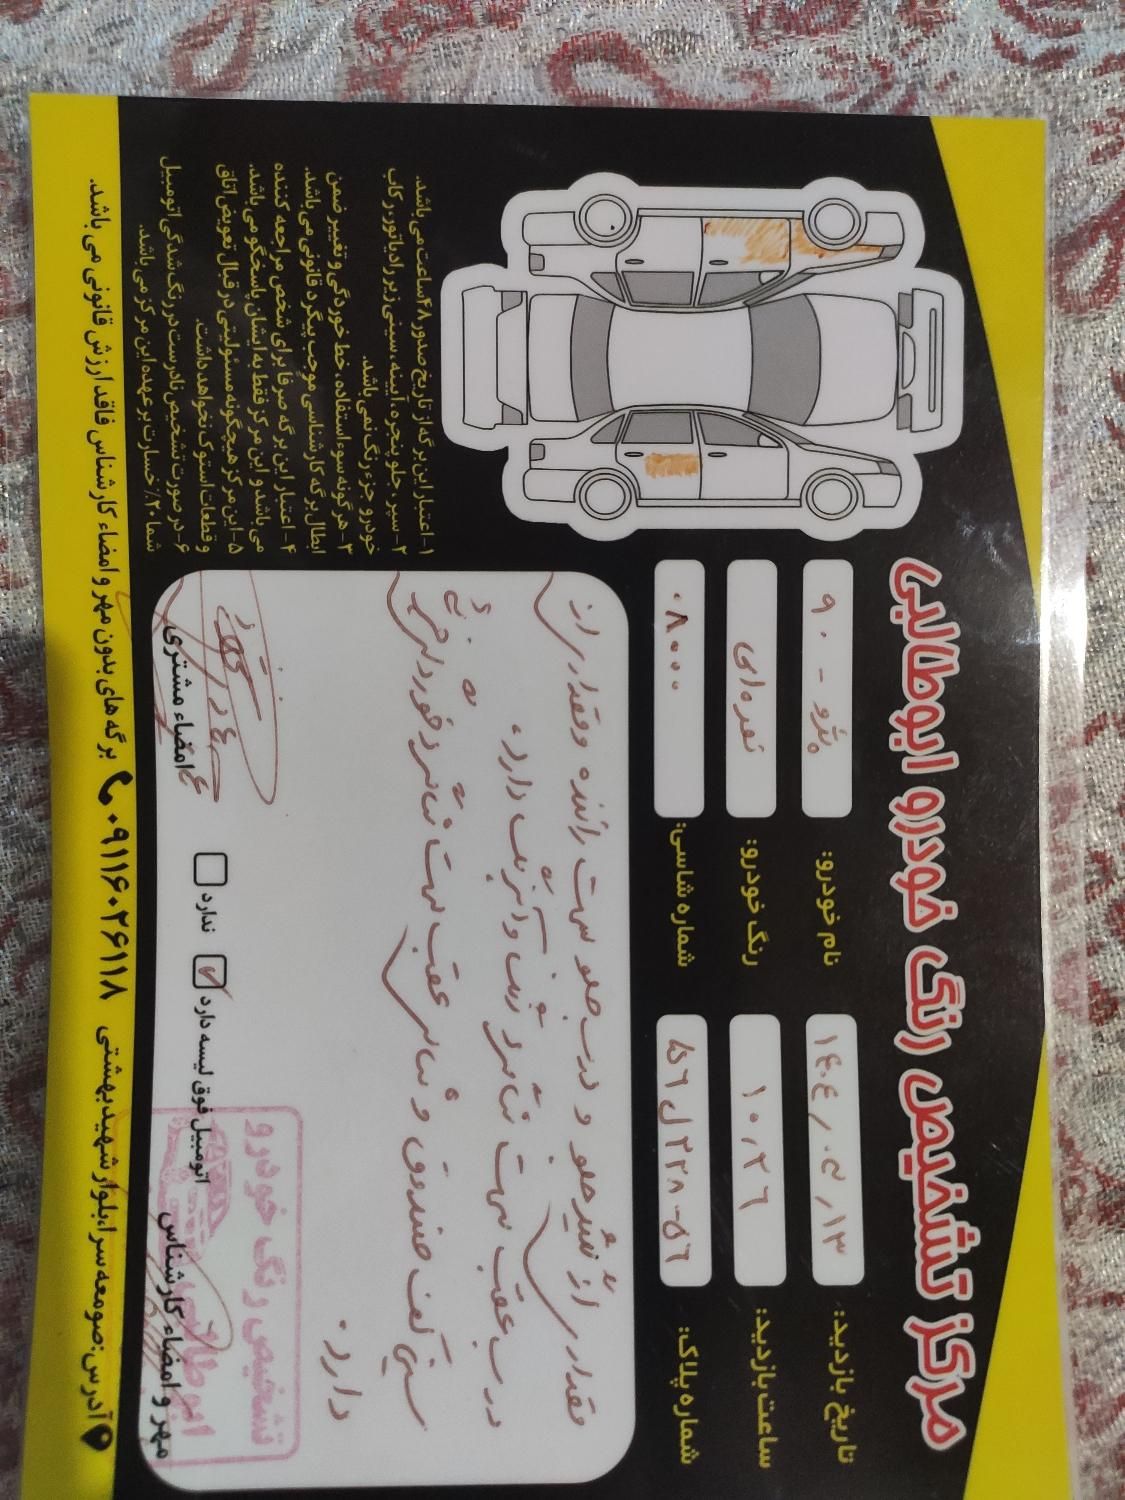 مرکز تشخیص رنگ خودرو ابوطالبی
تاریخ بازدید: ۱۴۰۴/۰۵/۱۳
نام خودرو: پژو - ۹۰
ساعت بازدید: ۱۰:۲۶
رنگ خودرو: نقره‌ای
شماره پلاک: ۵۶-۲۲۸ ل ۱۵۶
شماره شاسی: ۰۸۰۰۰
۱- اعتبار این برگه از تاریخ صدور ۴۸ ساعت می باشد.
۲- سپر، جلو پنجره، آیینه، سینی زیر رادیاتور، رکاب
خودرو جزء رنگ نمی باشد.
۳- هرگونه سوء استفاده، خط خوردگی و تغییر ضمن
ابطال برگه کارشناسی موجب پیگرد قانونی می باشد.
۴- اعتبار این برگه صرفا برای شخص مراجعه کننده
می باشد و این مرکز فقط به ایشان پاسخگو می باشد.
۵- این مرکز هیچگونه مسئولیتی در قبال تعویض اتاق
و قطعات استوک نخواهد داشت.
۶- در صورت تشخیص نادرست در رنگ شدگی اتومبیل
شما ۲۰٪ خسارت بر عهده این مرکز می باشد.
مقداری از گلگیر جلو و درب جلو سمت راننده و مقداری از
درب عقب سمت شاگرد رنگ
سینی کف صندوق و شاگرد عقب سمت شاگرد خوردگی
دارد.
اتومبیل فوق لیسه دارد ندارد
مهر و امضاء کارشناس
امضاء مشتری
تشخیص رنگ خودرو
ابوطالبی
آدرس: صومعه سرا، بلوار شهید بهشتی
۰۹۱۱۶۰۲۶۱۱۸
برگه های بدون مهر و امضاء کارشناس فاقد ارزش قانونی می باشد.